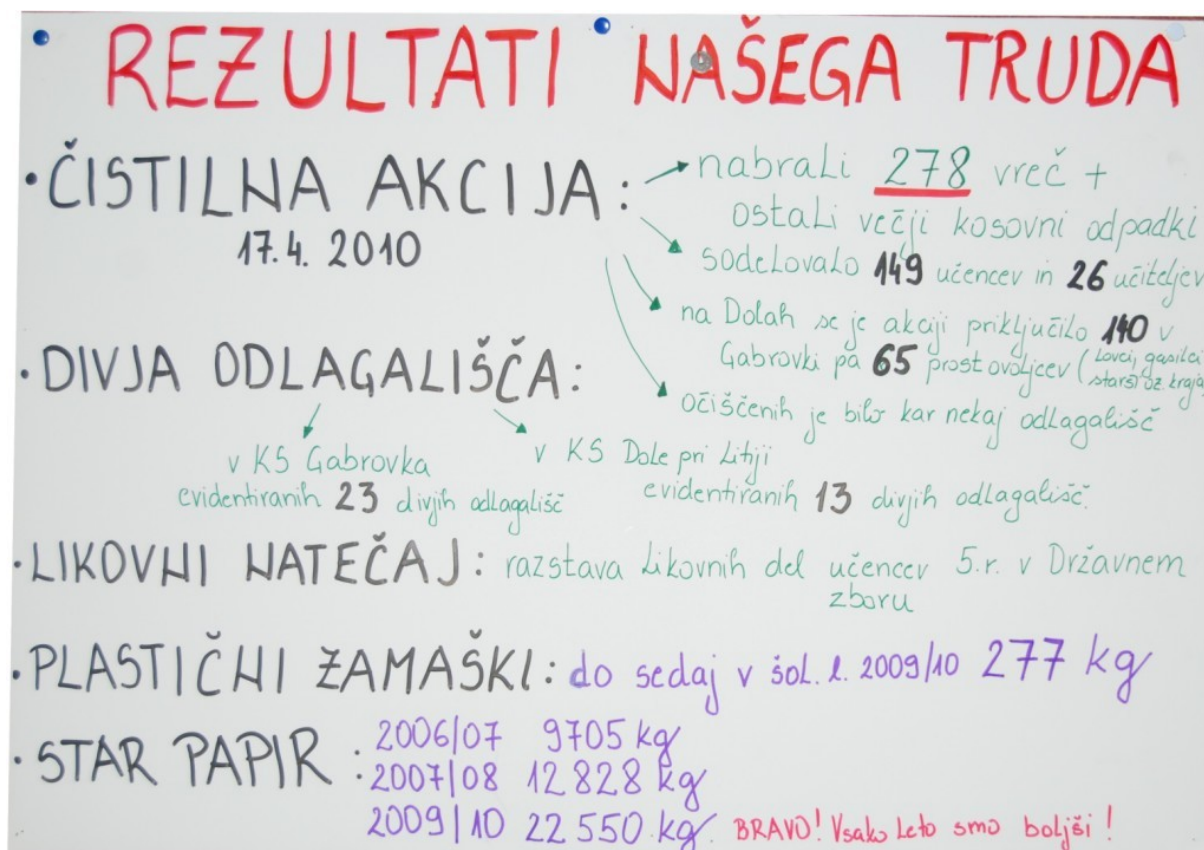 REZULTATI NAŠEGA TRUDA
• ČISTILNA AKCIJA:
17.4. 2010
nabrali 278 vreč +
ostali večji kosovni odpadki
sodelovalo 149 učencev in 26 učiteljev
na Dolah se je akciji priključilo 140 v
Gabrovki pa 65 prostovoljcev (lovci, gasilci
starši oz. kraja
očiščenih je bilo kar nekaj odlagališč
• DIVJA ODLAGALIŠČA:
v KS Gabrovka
evidentiranih 23 divjih odlagališč
v KS Dole pri Litiji
evidentiranih 13 divjih odlagališč.
• LIKOVNI NATEČAJ: razstava likovnih del učencev 5.r. v Državnem
zboru
• PLASTIČNI ZAMAŠKI: do sedaj v šol. l. 2009/10 277 kg
• STAR PAPIR: 2006/07 9705 kg
2007/08 12 828 kg
2009/10 22 550 kg. BRAVO! Vsako leto smo boljši!